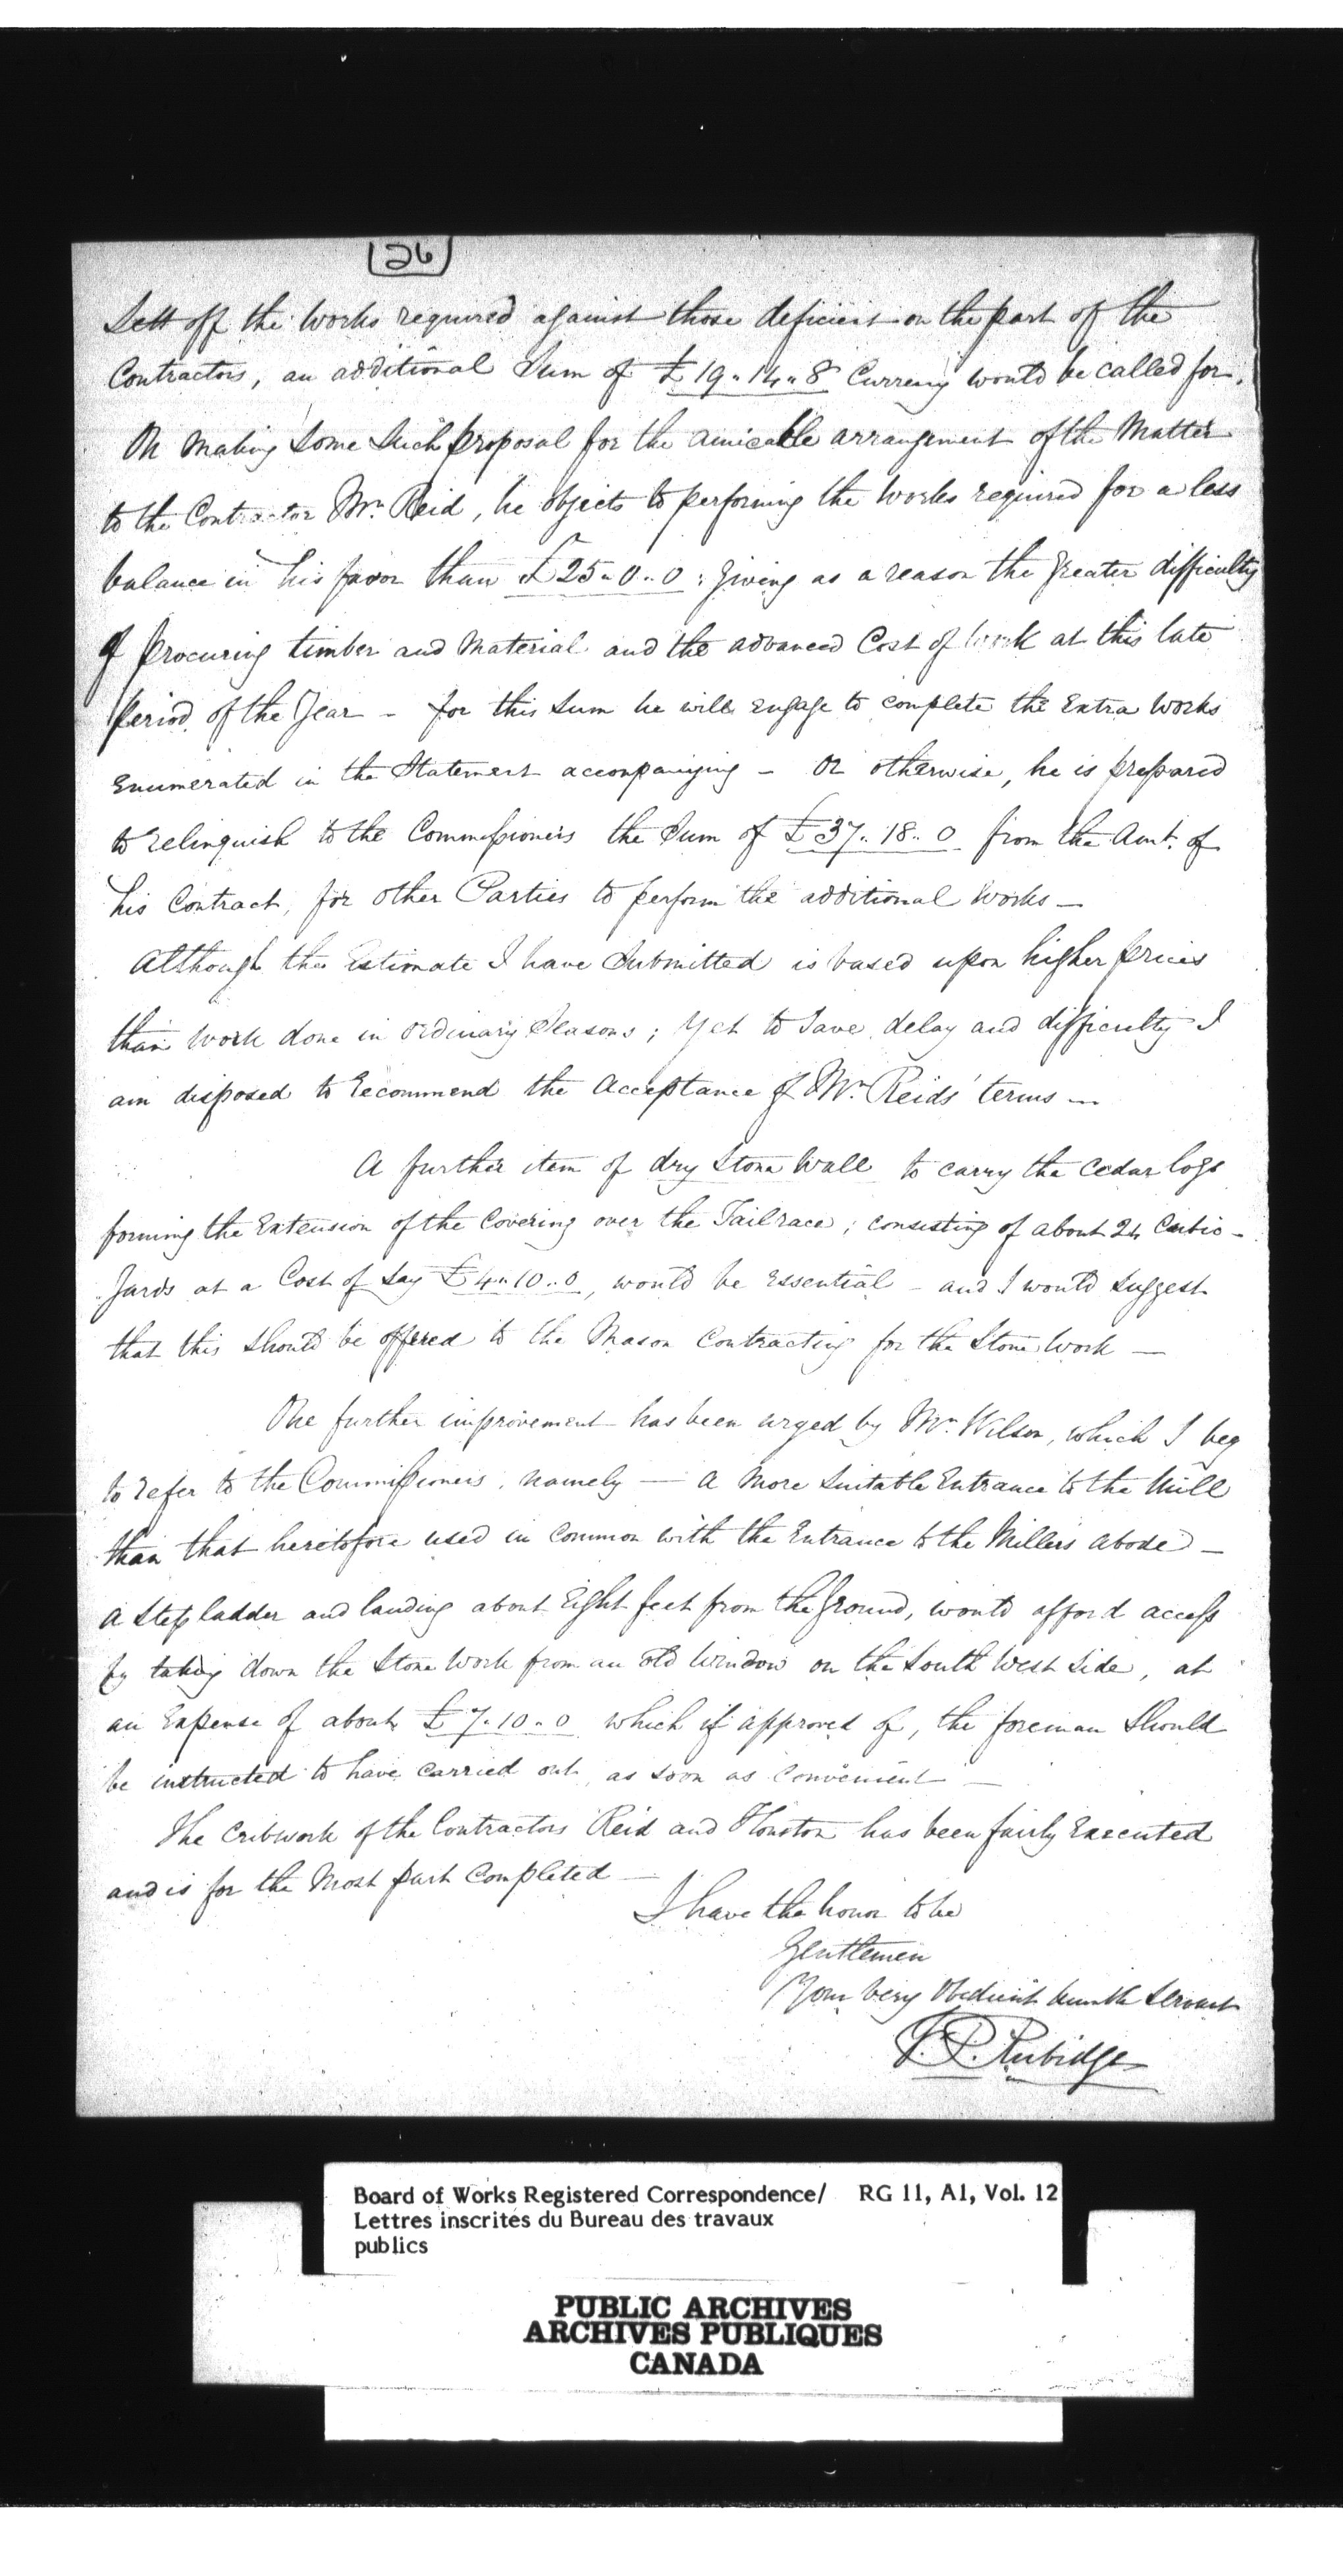 26
Sett off the works required against those deficient on the part of the
Contractors, an additional Sum of £19..14..8 Currency would be called for.
On making some such proposal for the amicable arrangement of the Matter
to the Contractor Mr. Reid, he objects to performing the works required for a less
balance in his favor than £25..0..0: giving as a reason the greater difficulty
of procuring timber and material and the advanced Cost of work at this late
period of the Year - for this sum he will engage to complete the Extra works
Enumerated in the Statement accompanying - or otherwise, he is prepared
to relinquish to the Commissioners the Sum of £37..18..0 from the Amt. of
his Contract, for other Parties to perform the additional works -
Although the Estimate I have Submitted is based upon higher prices
than work done in ordinary Seasons; yet to save delay and difficulty I
am disposed to recommend the acceptance of Mr. Reids' terms -
A further item of dry Stone Wall to carry the cedar logs
forming the Extension of the Covering over the Tailrace; consisting of about 24 Cubic -
Yards at a Cost of say £4..10..0, would be Essential - and I would suggest
that this should be offered to the Mason Contracting for the Stone work -
One further improvement has been urged by Mr. Wilson, which I beg
to refer to the Commissioners, namely - a more suitable Entrance to the Mill
than that heretofore used in common with the Entrance to the Millers abode -
a step ladder and landing about Eight feet from the ground, would afford access
by taking down the Stone work from an old window on the South West Side, at
an Expense of about £7..10..0 which if approved of, the foreman should
be instructed to have carried out as soon as Convenient -
The Cribwork of the Contractors Reid and Houston has been fairly Executed
and is for the most part Completed -
I have the honor to be
Gentlemen
Your very Obedient humble Servant
F. P. Rubidge
Board of Works Registered Correspondence/ RG 11, A1, Vol. 12
Lettres inscrites du Bureau des travaux
publics
PUBLIC ARCHIVES
ARCHIVES PUBLIQUES
CANADA